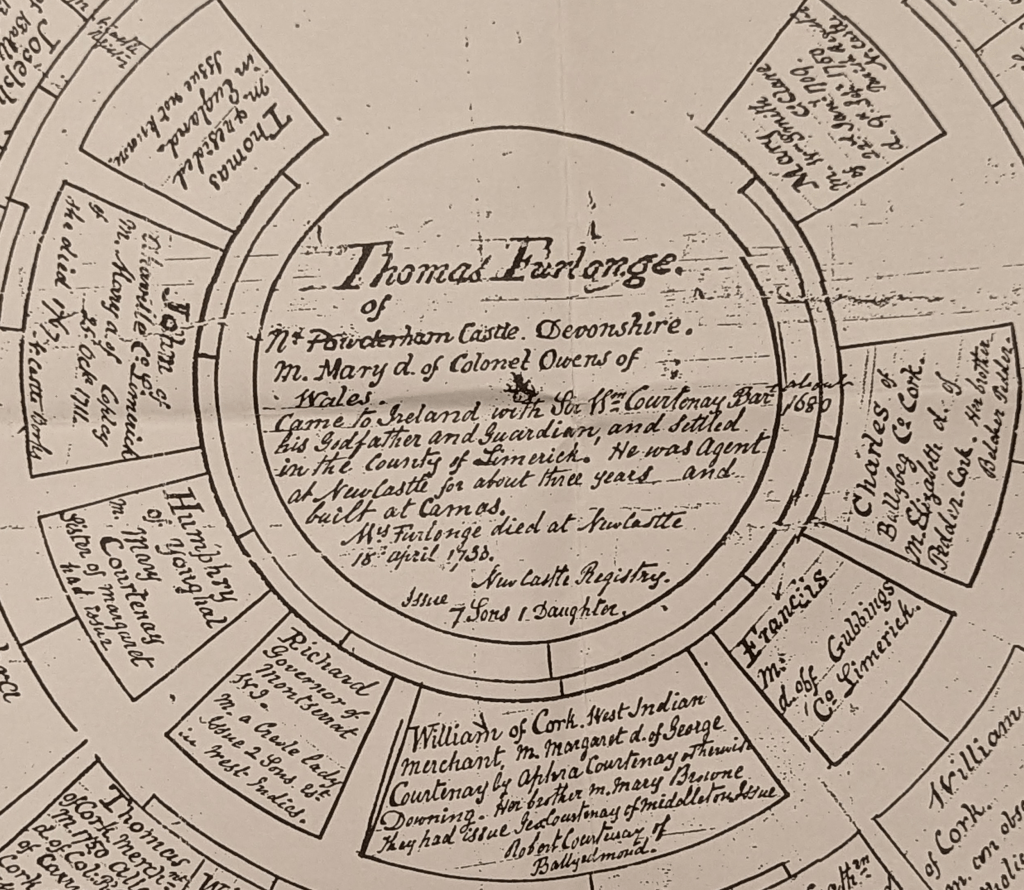 Thomas Furlonge.
of
Nr Powderham Castle. Devonshire.
M. Mary d. of Colonel Owens of
Wales.
Came to Ireland with Sir Wm Courtenay Bart about 1680
his Godfather and Guardian, and settled
in the County of Limerick. He was Agent
at NewCastle for about three years and
built at Camas.
Mrs Furlonge died at Newcastle
18th april 1733.
NewCastle Registry.
Issue
7 Sons 1 Daughter.
Thomas
M. & resided
in England.
Issue not known.
John of
Co. Limerick
M. Mary d. of Copley
of 25 Oct 1711.
She died 1767.
Humphry
of Youghal
M. Mary
Courtenay
Sister of margaret
had issue
Richard
Governor of
Montserrat
W.I.
M a Creole lady
Issue 2 Sons
in West Indies.
William of Cork. West Indian
Merchant, M. Margaret d. of George
Courtenay by Aphra Courtenay otherwise
Downing. Her brother m. Mary Browne
They had issue Geo Courtenay of middleton Issue
Robert Courtenay of
Ballyedmond.
Francis
M.
d. of Gubbings
Co Limerick.
Charles of
Ballybeg Co Cork.
M Elizabeth d. of
Pedder. Cork. Her brother
Belcher Pedder.
Mary
M. Wm Smith
of Co Clare
22d Jany 1709.
d. 9th 1760.
Thomas
of Cork. merchnt
M. 1750
William
of Cork.
Joseph